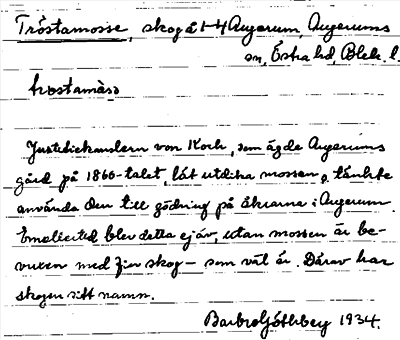 Tröstamosse, skog å 1-4 Augerum, Augerums
sn, Östra hd, Blek. l.
Justitiekanslern von Koch, som ägde Augerums
gård på 1860-talet, lät utdika mossen o. tänkte
använda den till gödning på åkrarna i Augerum.
Emellertid blev detta ej av, utan mossen är be-
vuxen med fin skog – som väl är. Därav har
skogen sitt namn.
Barbro Göthberg 1934.